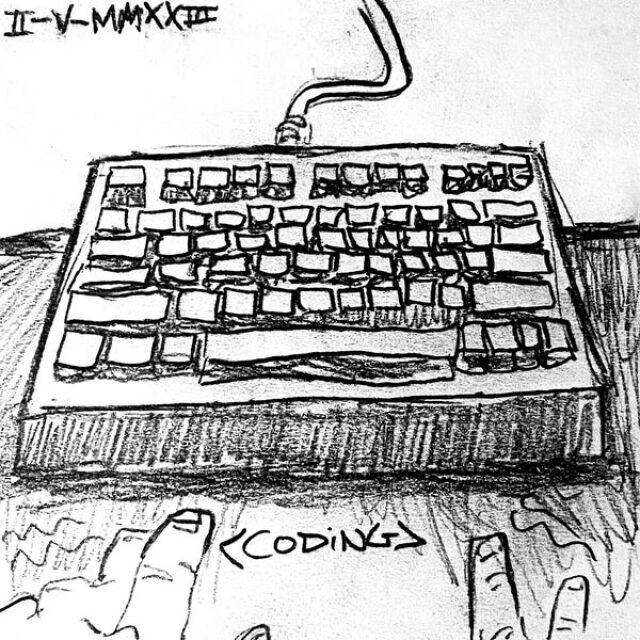 II-V-MMXXIII
<CODiNG>